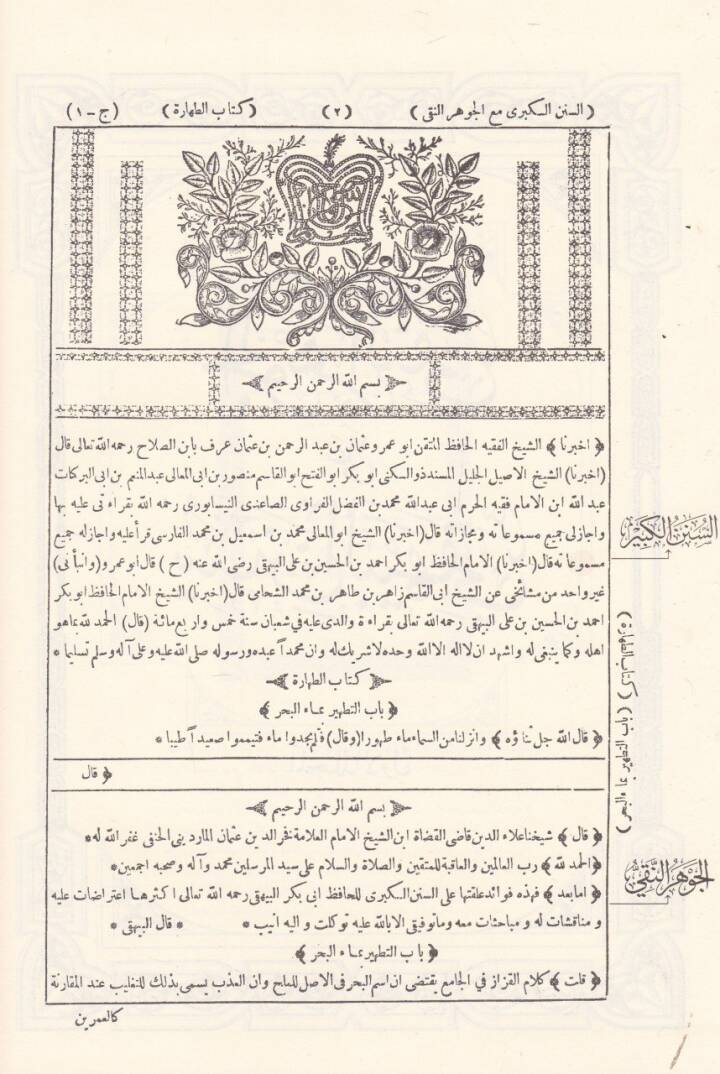 ( السنن الكبرى مع الجوهر النقى ) (٢) ( كتاب الطهارة ) (ج – ١)
بسم الله الرحمن الرحيم
﴿ اخبرنا ﴾ الشيخ الفقيه الحافظ المتقن ابو عمرو عثمان بن عبد الرحمن بن عثمان عرف بابن الصلاح رحمه الله تعالى قال
(اخبرنا) الشيخ الاصيل الجليل المسند ذو السكنى ابو بكر ابو الفتح ابو القاسم منصور بن ابى المعالى عبد المنعم بن ابى البركات
عبد الله ابن الامام فقيه الحرم ابى عبد الله محمد بن الفضل الفراوى الصاعدى النيسابورى رحمه الله بقراءتى عليه بها
واجازلى جميع مسموعاته ومجازاته قال (اخبرنا) الشيخ ابو المعالى محمد بن اسمعيل بن محمد الفارسى قرأ عليه واجازله جميع
مسموعاته قال (اخبرنا) الامام الحافظ ابو بكر احمد بن الحسين بن على البيهقى رضى الله عنه ( ح ) قال ابو عمرو (وانبأنى)
غير واحد من مشائخى عن الشيخ ابى القاسم زاهر بن طاهر بن محمد الشحامى قال (اخبرنا) الشيخ الامام الحافظ ابو بكر
احمد بن الحسين بن على البيهقى رحمه الله تعالى بقراءة والدى عليه فى شعبان سنة خمس واربع مائة (قال) الحمد لله بما هو
اهله وكما ينبغى له واشهد ان لا اله الا الله وحده لا شريك له وان محمداً عبده ورسوله صلى الله عليه وعلى آله وسلم تسليما *
كتاب الطهارة
﴿ باب التطهير بماء البحر ﴾
﴿ قال الله جل ثناؤه ﴾ وانزلنا من السماء ماء طهورا (وقال) فلم تجدوا ماء فتيمموا صعيداً طيبا *
﴿ قال
بسم الله الرحمن الرحيم
﴿ قال ﴾ شيخنا علاء الدين قاضى القضاة ابن الشيخ الامام العلامة فخر الدين عثمان الماردينى الحنفى غفر الله له *
﴿ الحمد لله ﴾ رب العالمين والعاقبة للمتقين والصلاة والسلام على سيد المرسلين محمد وآله وصحبه اجمعين *
﴿ امابعد ﴾ فهذه فوائد علقتها على السنن الكبرى للحافظ ابى بكر البيهقى رحمه الله تعالى اكثرها اعتراضات عليه
ومناقشات له ومباحثات معه وما توفيقى الا بالله عليه توكلت واليه انيب * * قال البيهقى *
﴿ باب التطهير بماء البحر ﴾
﴿ قلت ﴾ كلام القزاز في الجامع يقتضى ان اسم البحر فى الاصل للملح وان العذب يسمى بذلك للتغليب عند المقارنة
كالعمرين
السنن الكبير
( كتاب الطهارة ) ( باب التطهير بماء البحر )
الجوهر النقي